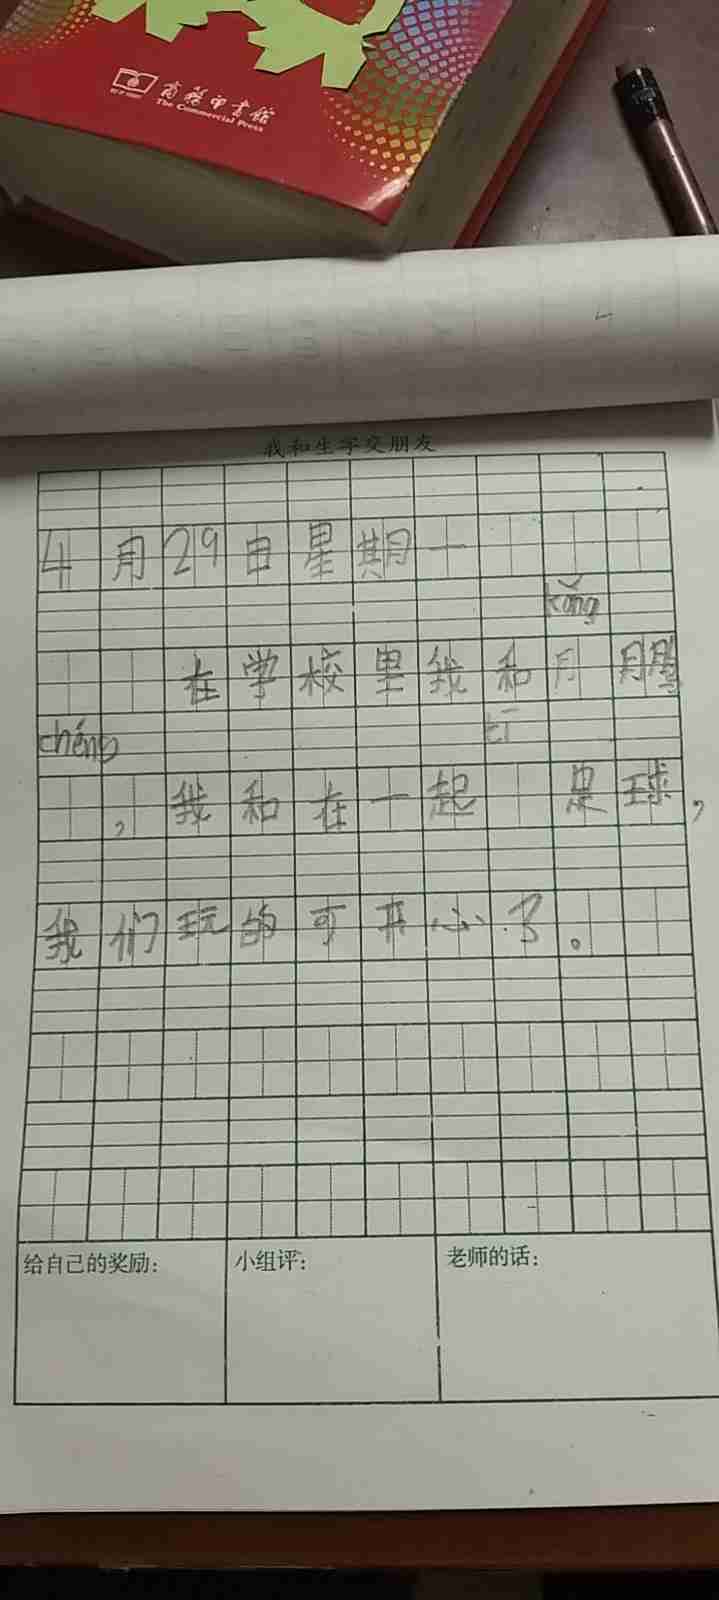 商務印書館
The Commercial Press
我和生字交朋友
4月29日星期一
kǒng
在学校里我和月鹏
chéng
,我和在一起足球,
我们玩的可开心了。
给自己的奖励:
小组评:
老师的话: